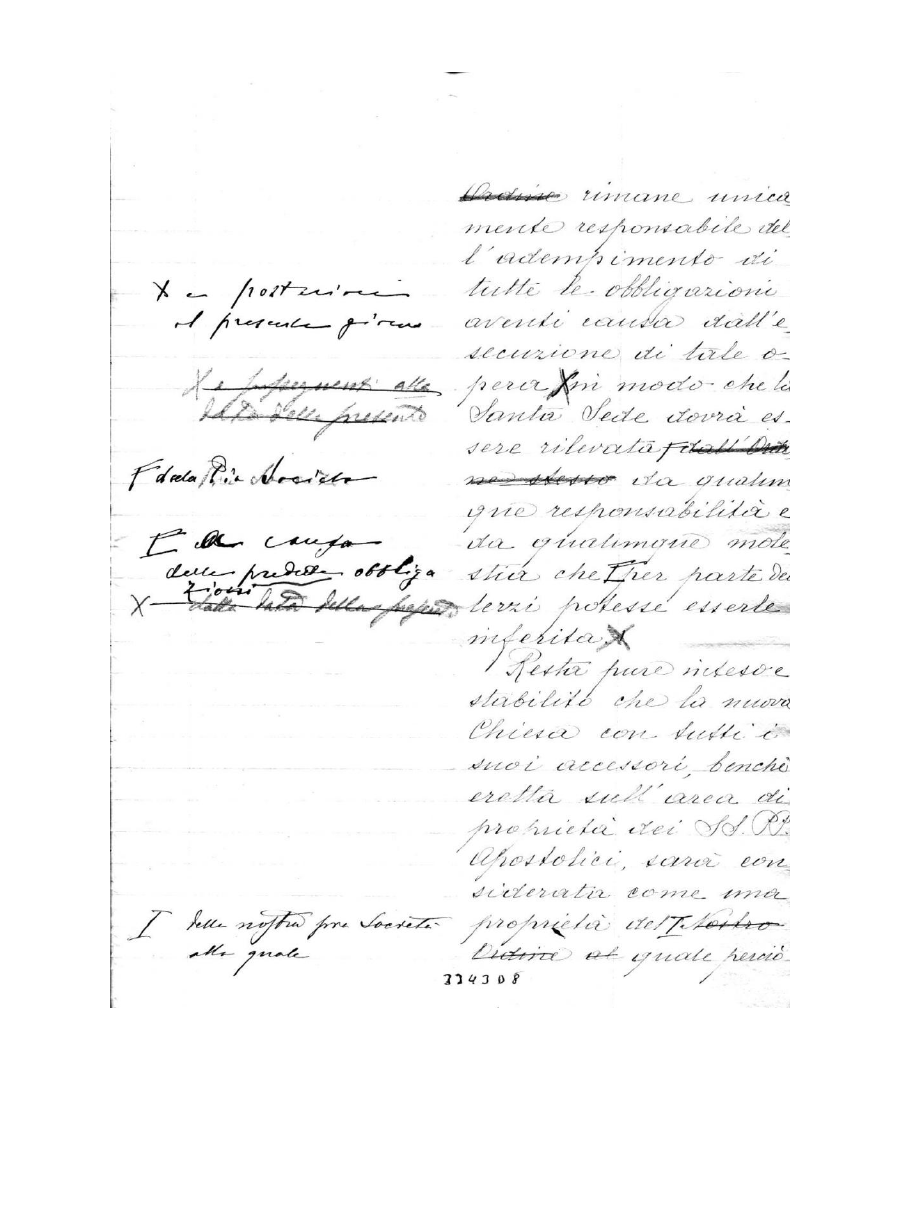 X e posteriori
al presente giorno
X e susseguenti alla
data della presente
F dalla Pia Società
I a causa
delle predette obbliga
zioni
X dalla data della presente
I della nostra pia Società
alla quale
Ordine rimane unica
mente responsabile del
l'adempimento di
tutte le obbligazioni
aventi causa dall'e
secuzione di tale o-
pera X in modo che la
Santa Sede dovrà es-
sere rilevata F dall'Ordi
ne stesso da qualun
que responsabilità e
da qualunque mole
stia che I per parte dei
terzi potesse esserle
inferita X
Resta pure inteso e
stabilito che la nuova
Chiesa con tutti i
suoi accessori, benchè
eretta sull'area di
proprietà dei SS. PP.
Apostolici, sarà con
siderata come una
proprietà del I Nostro
Ordine al quale perciò
334308